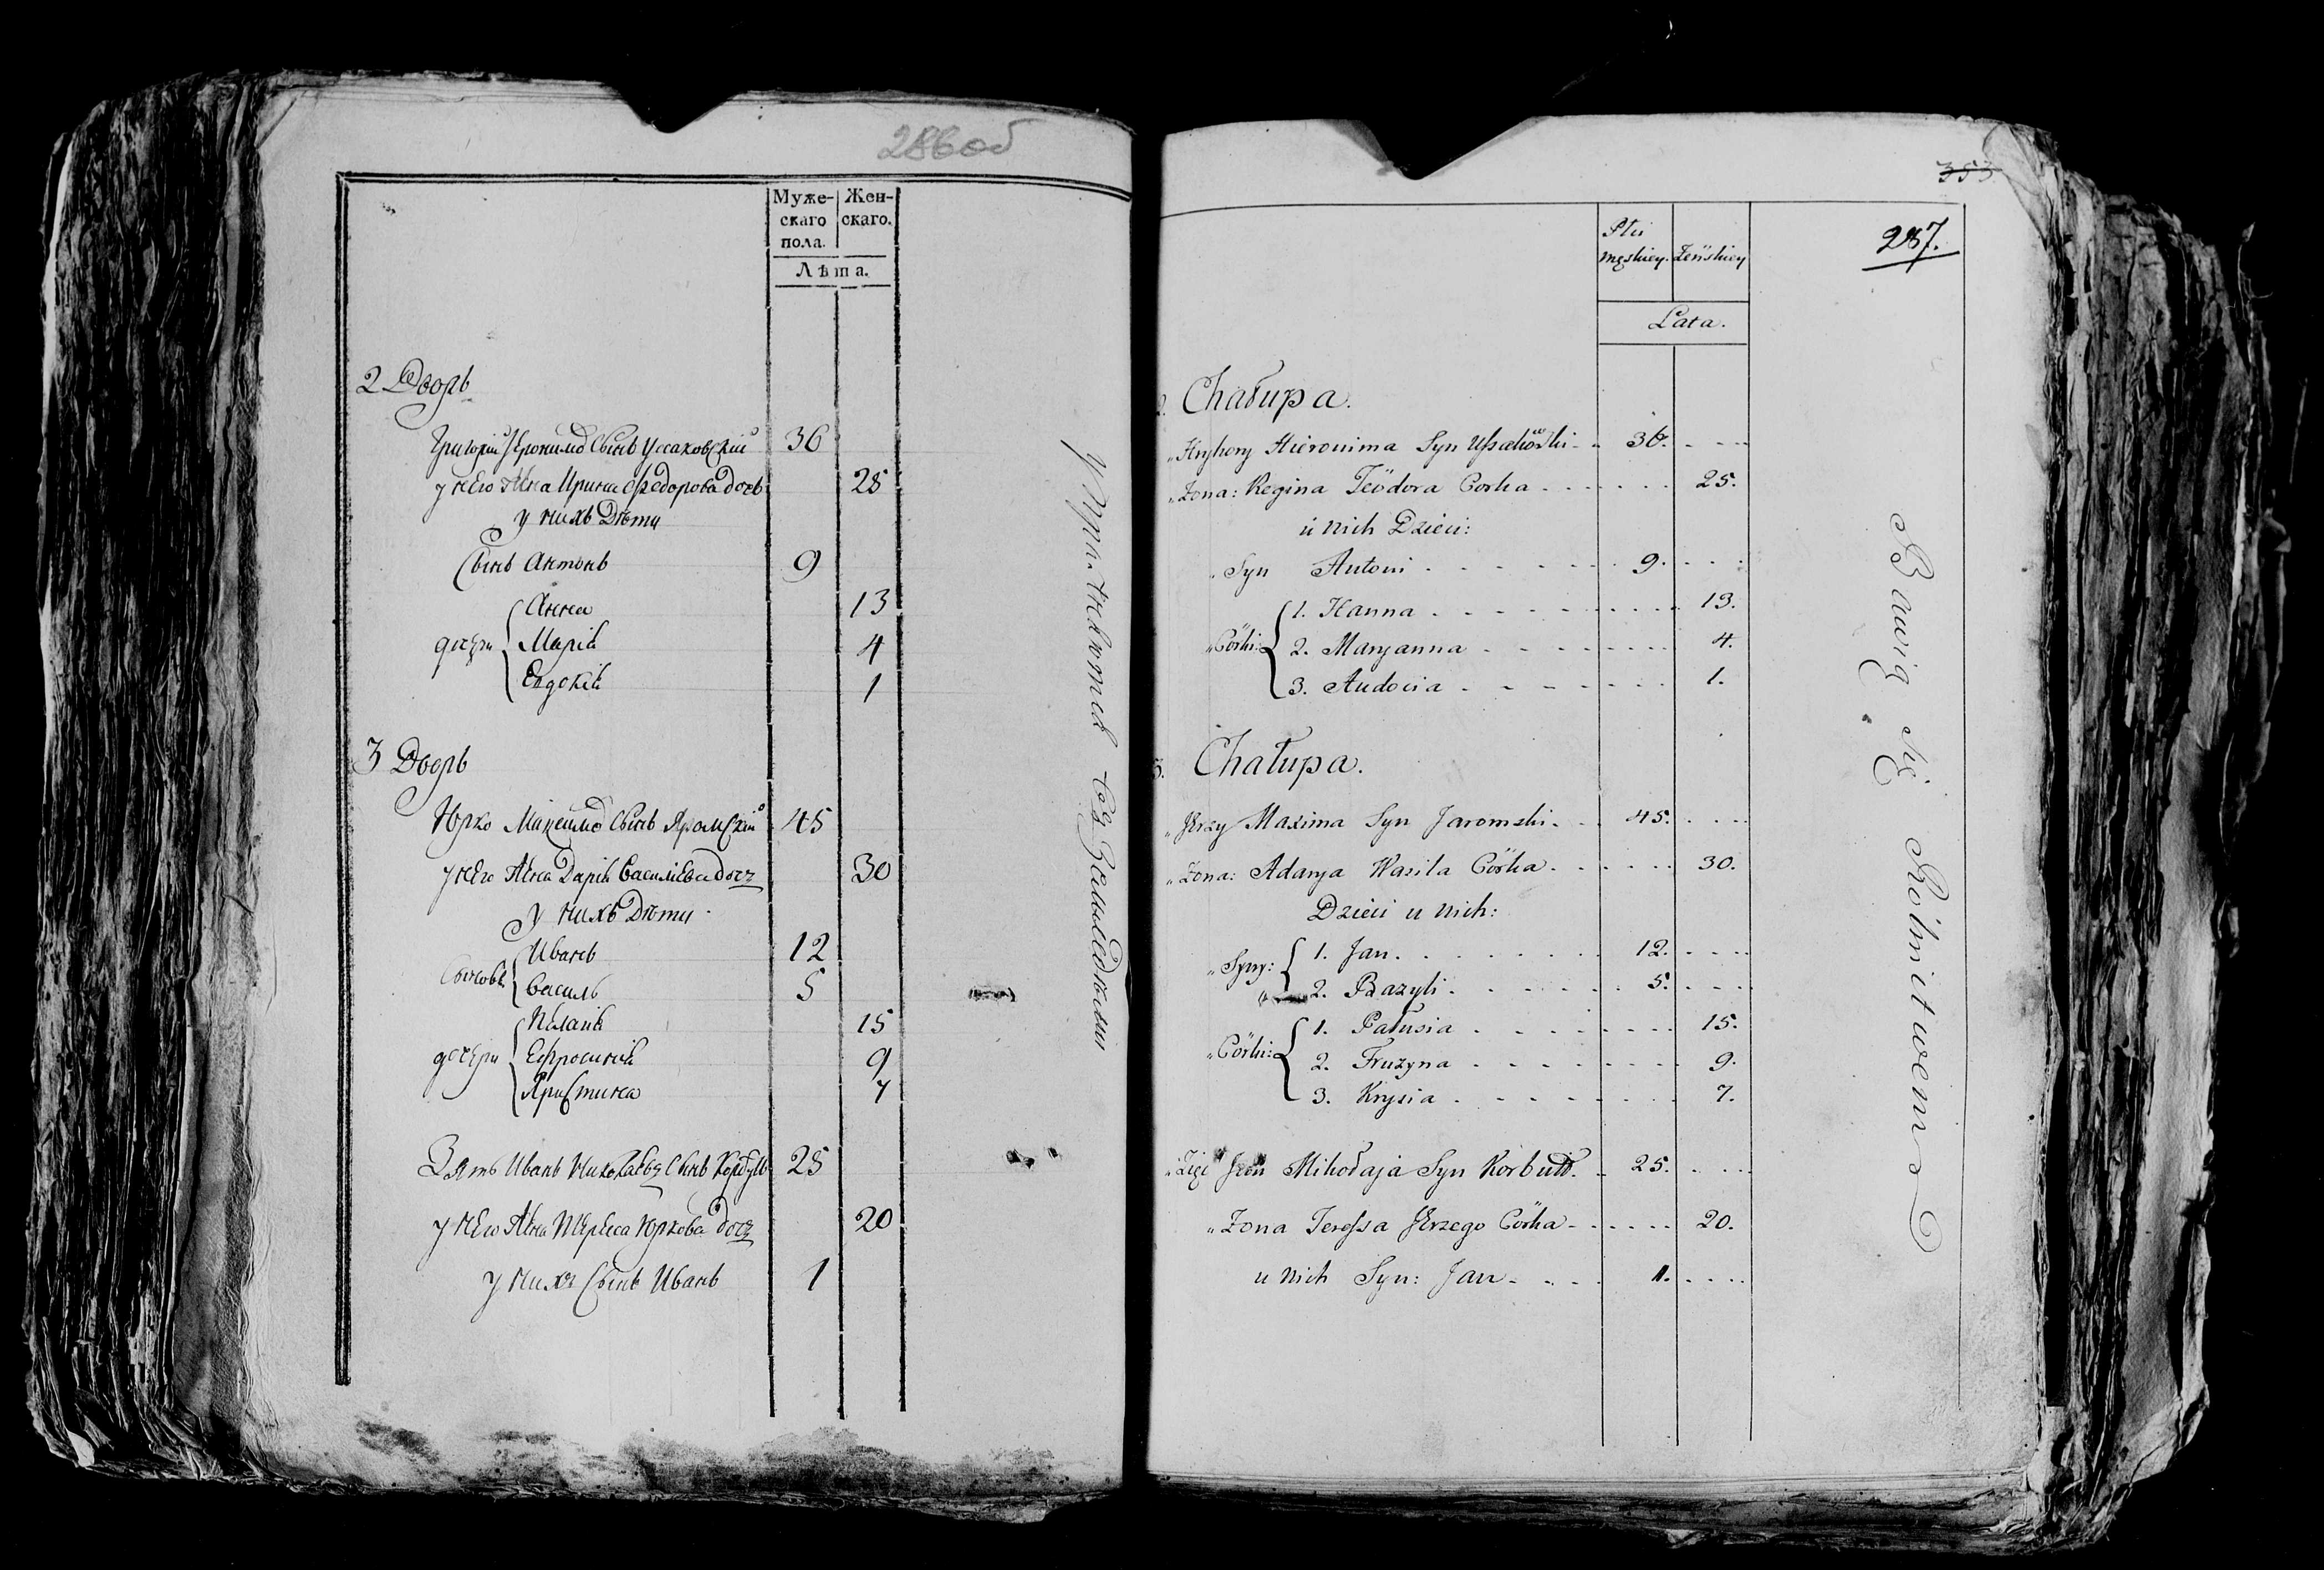 286об
Муже-
скаго
пола.
Жен-
скаго.
Лѣта.
2 Дворъ
Григорій Иеронима Сынъ Уссаковскій 36
у него жена Ирина Федорова дочь 25
у нихъ Дѣти
Сынъ Антонъ 9
дочери
Анна 13
Марія 4
Евдокія 1
3 Дворъ
Юрко Максима Сынъ Яромскій 45
у него жена Дарія Василіева дочь 30
у нихъ Дѣти
Сыновья
Иванъ 12
Василь 5
дочери
Пелагія 15
Ефросинія 9
Христина 7
Зять Иванъ Николаевъ Сынъ Корбутъ 25
у него жена Тереса Юркова дочь 20
у нихъ Сынъ Иванъ 1
353
287.
Płci
męskiey. Żeńskiey
Lata.
2. Chałupa.
Hryhory Hieronima Syn Ussakowski 36.
Żona: Regina Teodora Corka 25.
u nich Dzieci:
Syn Antoni 9.
Córki:
1. Hanna 13.
2. Maryanna 4.
3. Audocia 1.
3. Chałupa.
Jerzy Maxima Syn Jaromski 45.
Żona: Adarya Wasila Córka 30.
Dzieci u nich:
Syny:
1. Jan 12.
2. Bazyli 5.
Córki:
1. Pałusia 15.
2. Fruzyna 9.
3. Krysia 7.
Zięć Jan Mikołaja Syn Korbutt 25.
Żona Teressa Jerzego Córka 20.
u nich Syn: Jan 1.
Bawią się Rolnictwem